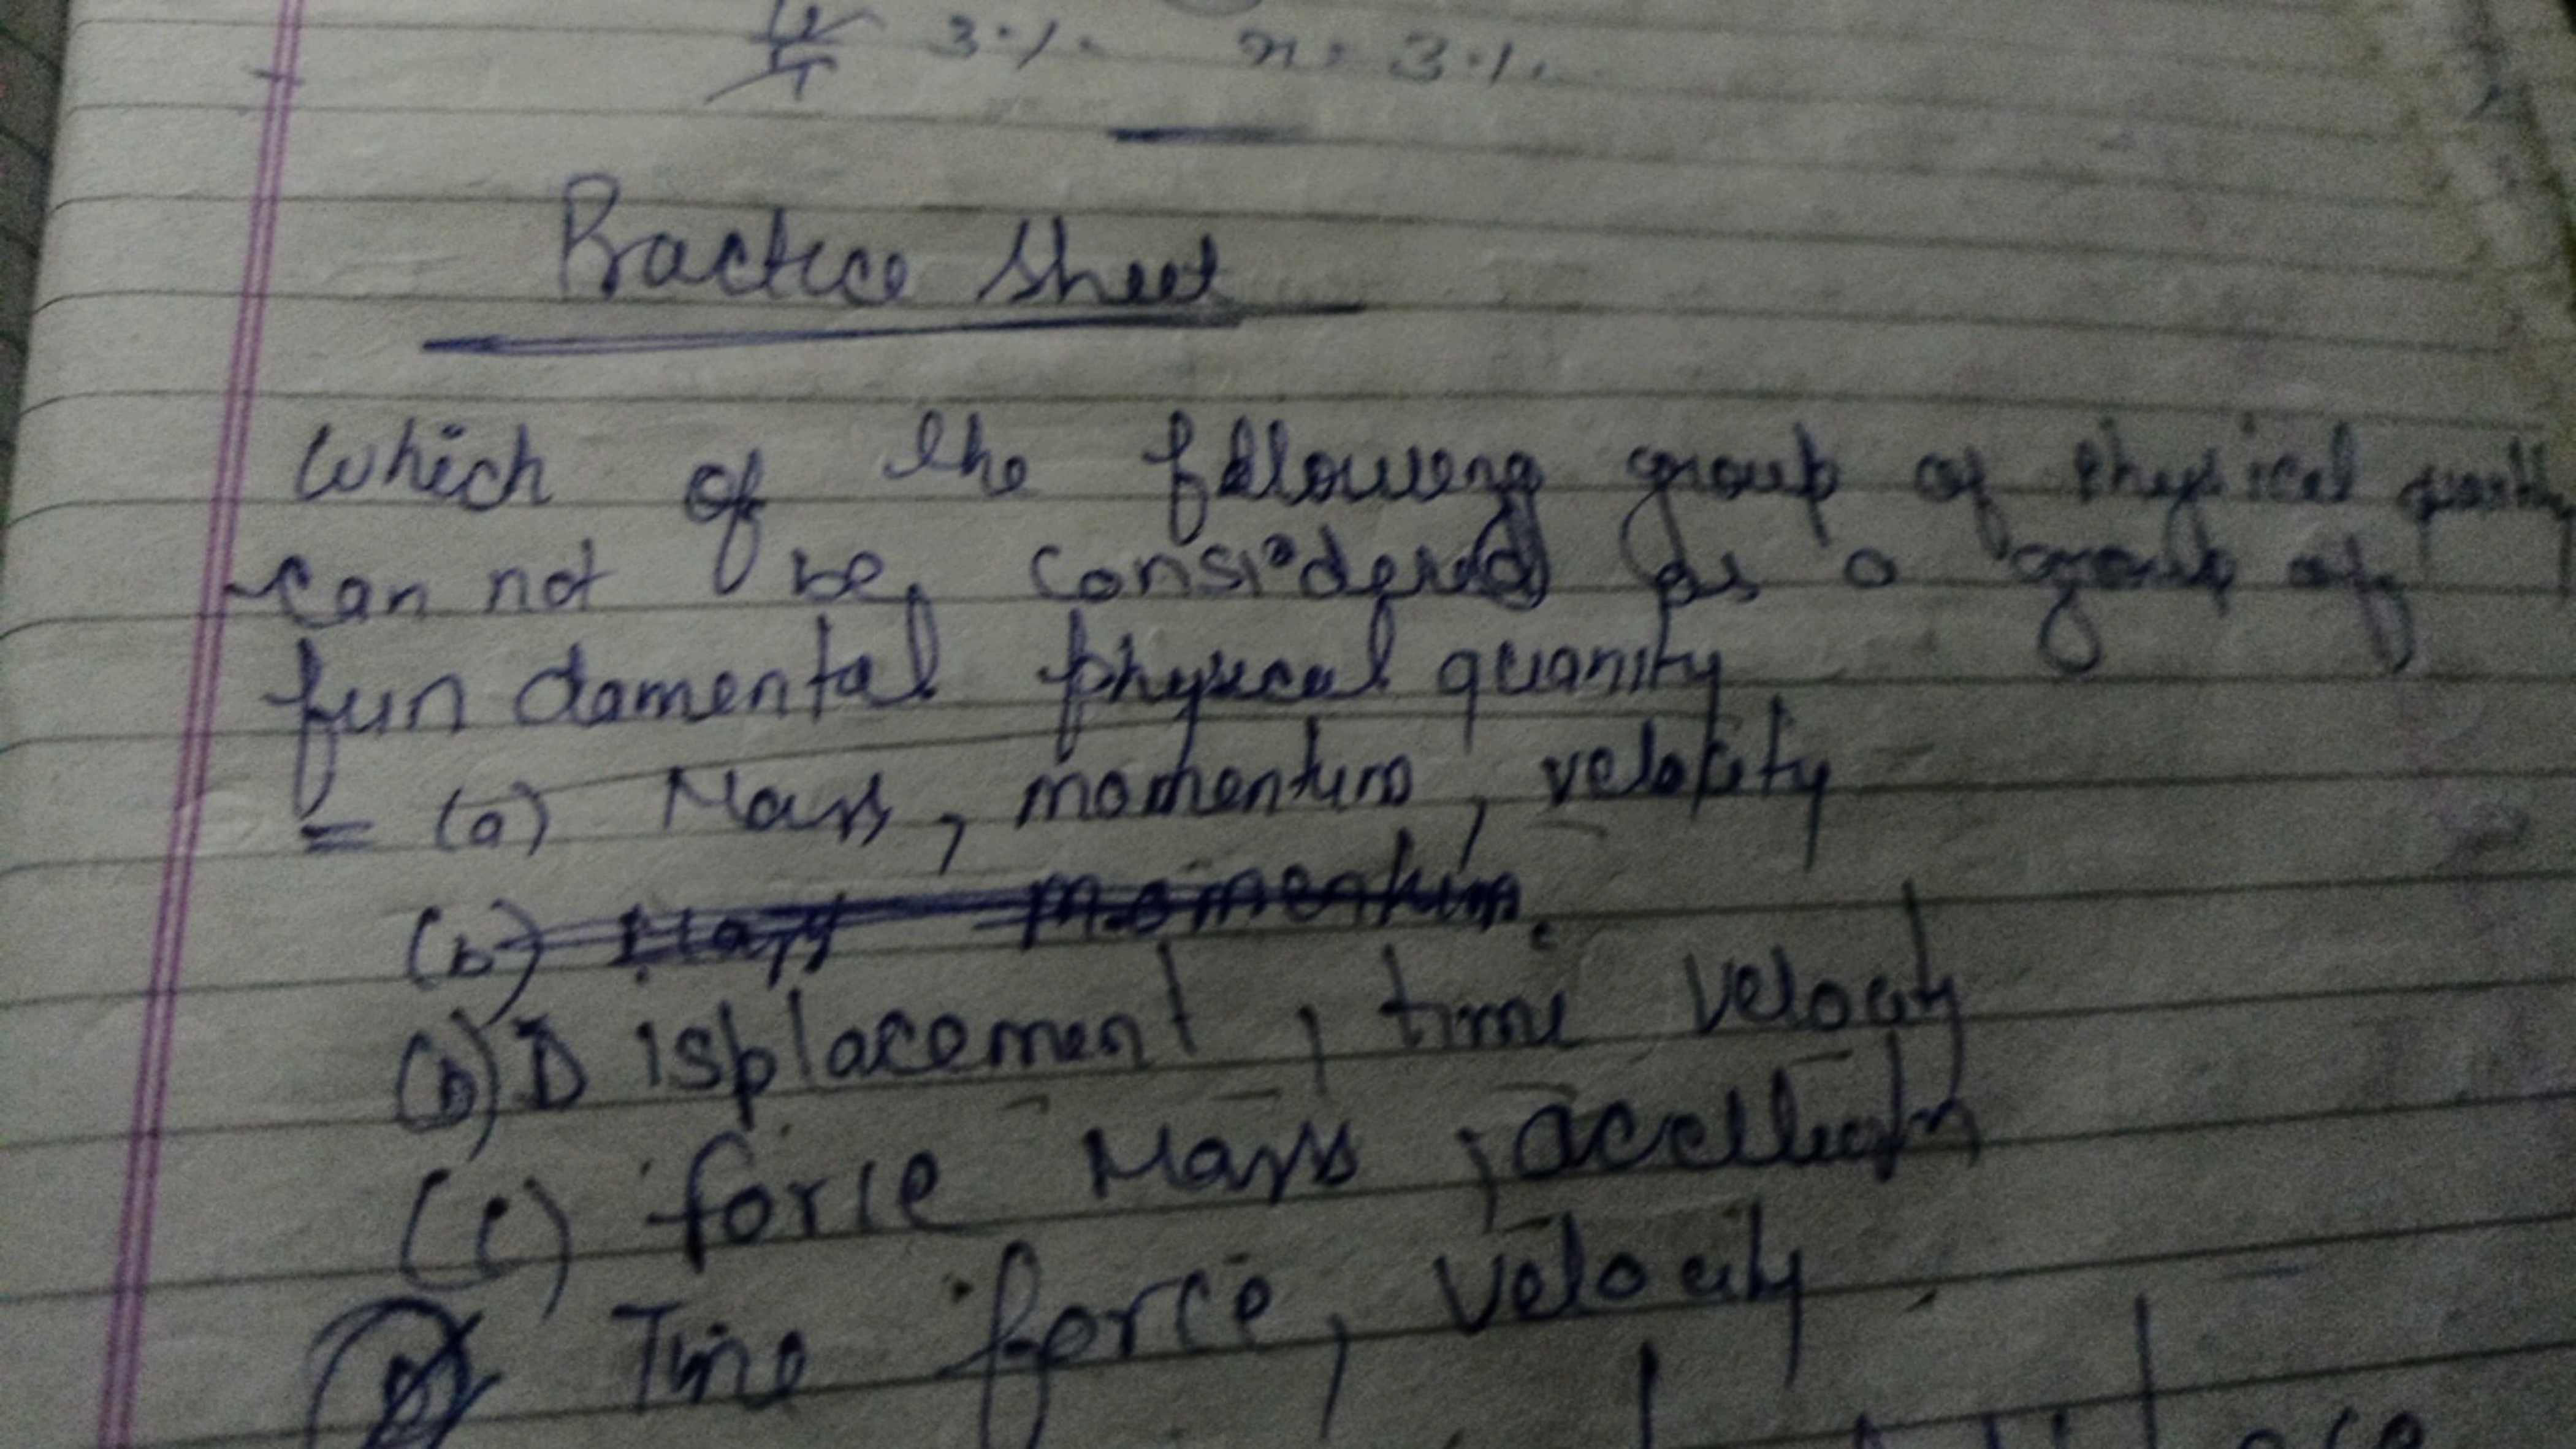 3% n = 3%
Practice Sheet
Which of the following group of Physical
can not be considered as a group of
fun damental physical quanity
= (a) Mass, momentum, velocity
(b) Mass momentum.
(b) Displacement, time velocity
(c) force Mass,
Time force, velocity